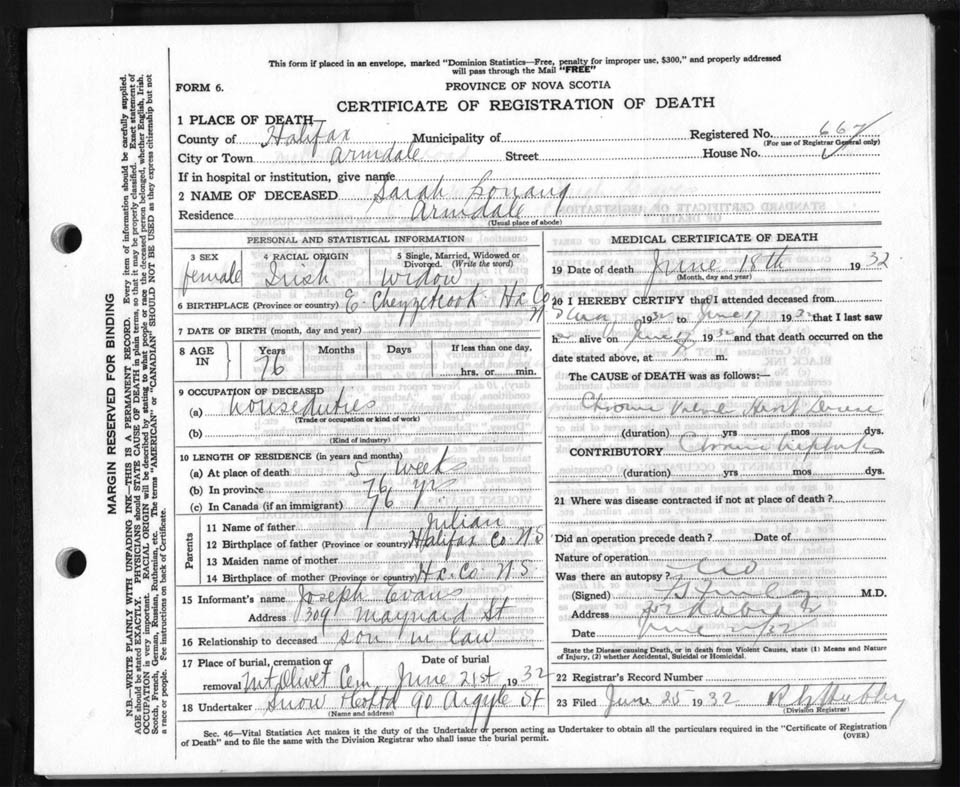 This form if placed in an envelope, marked "Dominion Statistics—Free, penalty for improper use, $300," and properly addressed
will pass through the Mail "FREE"
FORM 6.
PROVINCE OF NOVA SCOTIA
CERTIFICATE OF REGISTRATION OF DEATH
1 PLACE OF DEATH
County of Halifax Municipality of Registered No. 667
(For use of Registrar General only)
City or Town Armdale Street House No.
If in hospital or institution, give name
2 NAME OF DECEASED Sarah
Residence Armdale
(Usual place of abode)
PERSONAL AND STATISTICAL INFORMATION
3 SEX 4 RACIAL ORIGIN 5 Single, Married, Widowed or Divorced. (Write the word)
female Irish Widow
6 BIRTHPLACE (Province or country) E. Chezzetcook Hx Co N
7 DATE OF BIRTH (month, day and year)
8 AGE IN Years Months Days If less than one day,
76 hrs. or min.
9 OCCUPATION OF DECEASED
(a) houseduties
(Trade or occupation or kind of work)
(b)
(Kind of industry)
10 LENGTH OF RESIDENCE (in years and months)
(a) At place of death 5 weeks
(b) In province 76 yrs
(c) In Canada (if an immigrant) 76
Parents
11 Name of father Julian
12 Birthplace of father (Province or country) Halifax Co N S
13 Maiden name of mother
14 Birthplace of mother (Province or country) Hx Co N S
15 Informant's name Joseph Evans
Address 309 Maynard St
16 Relationship to deceased son in law
17 Place of burial, cremation or removal Mt Olivet Cem
Date of burial June 21st 1932
18 Undertaker Snow 90 Argyle St
(Name and address)
MEDICAL CERTIFICATE OF DEATH
19 Date of death June 18th 1932
(Month, day and year)
20 I HEREBY CERTIFY that I attended deceased from
1932 to June 17 1932 that I last saw
her alive on June 17 1932 and that death occurred on the
date stated above, at m.
The CAUSE of DEATH was as follows:—
Chronic Valvular Heart Disease
(duration) yrs mos dys.
CONTRIBUTORY Chronic
(duration) yrs mos dys.
21 Where was disease contracted if not at place of death?
Did an operation precede death? Date of
Nature of operation
Was there an autopsy? No
(Signed) M.D.
Address
Date June
State the Disease causing Death, or in death from Violent Causes, state (1) Means and Nature
of Injury, (2) whether Accidental, Suicidal or Homicidal.
22 Registrar's Record Number
23 Filed June 25 1932
(Division Registrar)
Sec. 46—Vital Statistics Act makes it the duty of the Undertaker or person acting as Undertaker to obtain all the particulars required in the "Certificate of Registration
of Death" and to file the same with the Division Registrar who shall issue the burial permit.
(OVER)
MARGIN RESERVED FOR BINDING
N.B.—WRITE PLAINLY WITH UNFADING INK—THIS IS A PERMANENT RECORD. Every item of information should be carefully supplied.
AGE should be stated EXACTLY. PHYSICIANS should STATE CAUSE OF DEATH in plain terms, so that it may be properly classified. Exact statement of
OCCUPATION is very important. RACIAL ORIGIN will be described by stating to what people or race the deceased person belonged, whether English, Irish,
Scotch, French, German, Russian, Ruthenian, etc. The terms "AMERICAN" or "CANADIAN" SHOULD NOT BE USED as they express citizenship but not
a race or people. See instructions on back of Certificate.